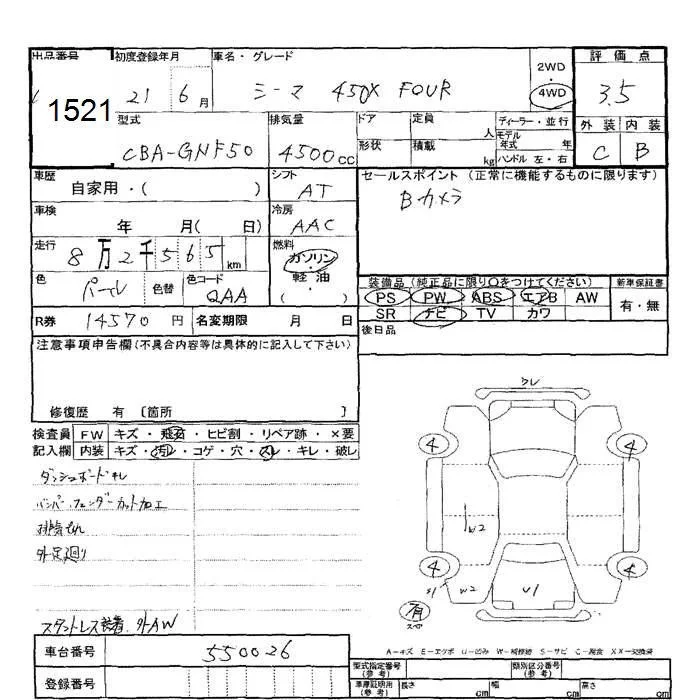 出品番号 初度登録年月 車名・グレード 評価点
1521 21 6月 シーマ 450X FOUR 2WD・4WD 3.5
型式 排気量 ドア 定員 人 ディーラー・並行 外装 内装
CBA-GNF50 4500cc 形状 積載 kg モデル年式 年 ハンドル 左・右 C B
車歴 自家用・( ) シフト AT セールスポイント (正常に機能するものに限ります)
Bカメラ
車検 年 月( 日) 冷房 AAC
走行 8万2千565km 燃料 ガソリン・軽油・( )
色 パール 色替 色コード QAA
装備品 (純正品に限り○をつけてください) 新車保証書
PS PW ABS エアB AW 有・無
SR ナビ TV カワ
R券 14570円 名変期限 月 日 後日品
注意事項申告欄(不具合内容等は具体的に記入して下さい)
修復歴 有 [箇所 ]
検査員 FW キズ・飛石・ヒビ割・リペア跡・×要
記入欄 内装 キズ・汚レ・コゲ・穴・スレ・キレ・破レ
ワレ
4 4
ダッシュボードキレ
バンパーフェンダーカット加工
W2
排気もれ
外足廻り
4 4
S1 W2 U1
有
スペア
スタントレス装着、外AW
A-キズ E-エクボ U-凹み W-補修跡 S-サビ C-腐食 XX-交換済
車台番号 550026
型式指定番号(参考) 類別区分番号(参考)
登録番号 車庫証明用(参考) 長さ cm 幅 cm 高さ cm